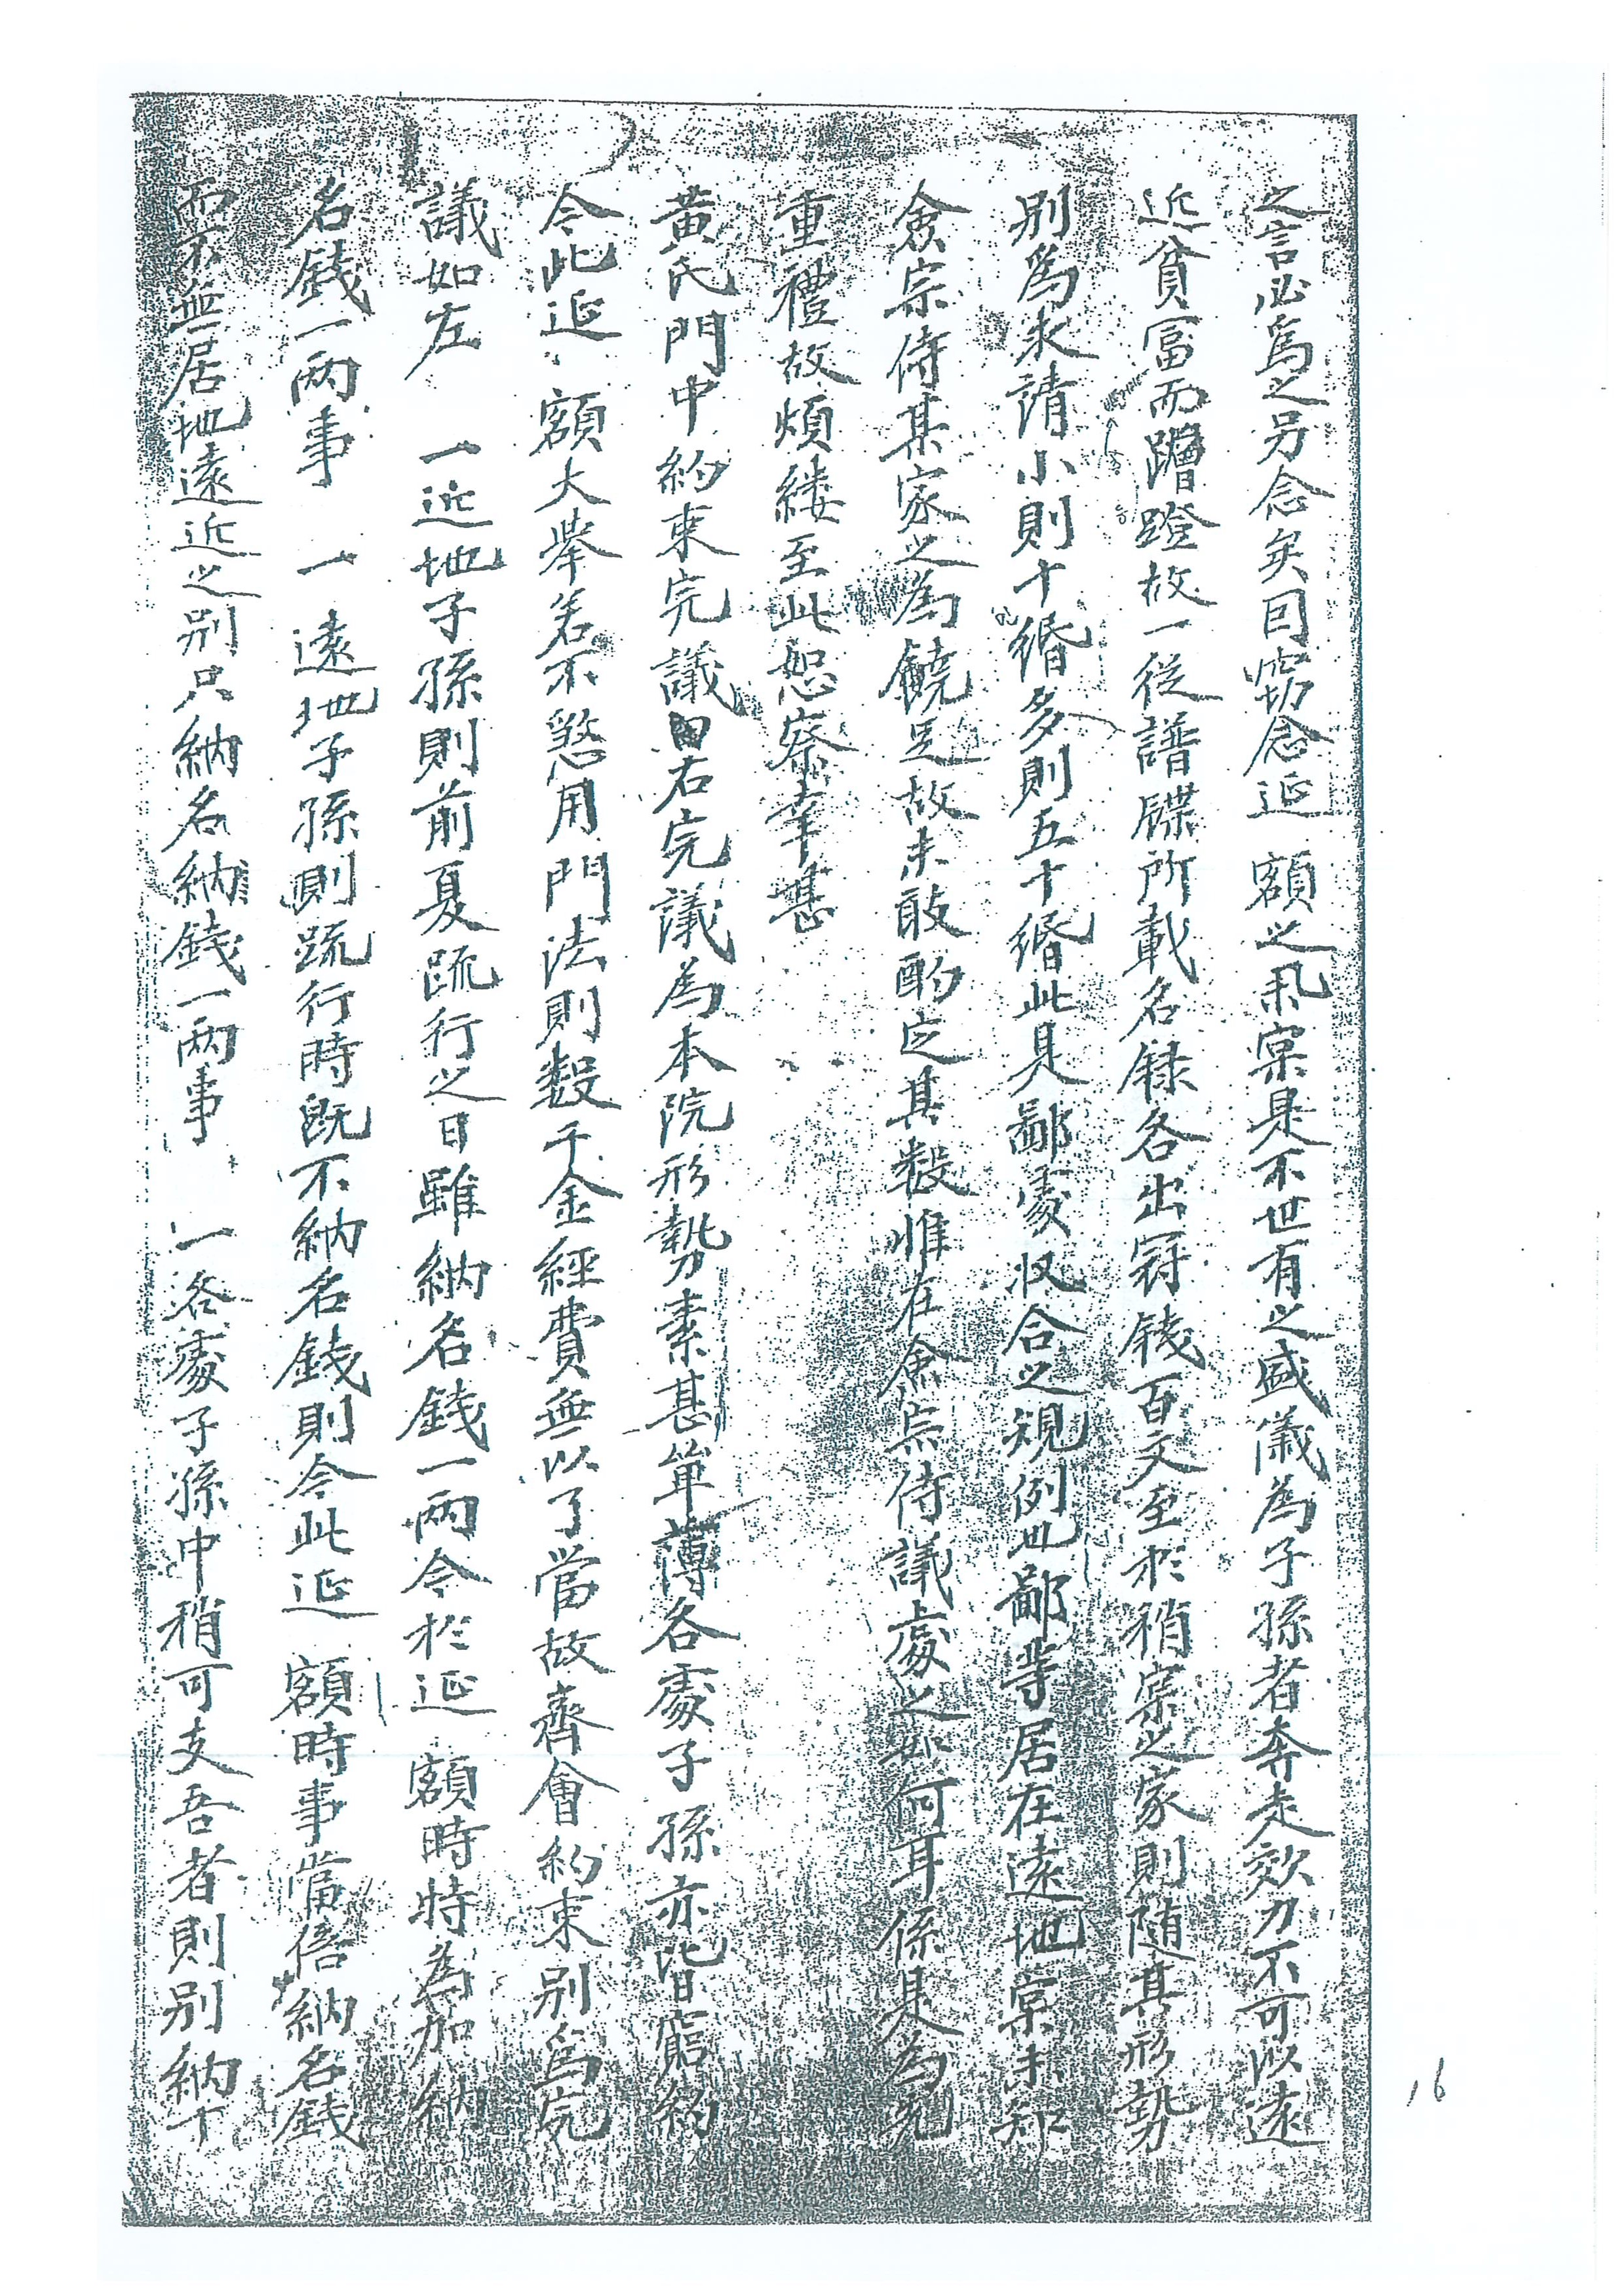 之言必爲之另念矣因竊念延 額之 寔是不世有之盛儀為子孫者奔走效力不可以遠
近貧富而蹭蹬故一從譜牒所載名錄各出冠錢百文至於稍寔之家則随其形勢
別爲求請小則十緡多則五十緡此是鄙處収合之規例也鄙等居在遠地寔未知
僉宗侍某家之為饒足故未敢酌定其數惟在僉宗侍議處之如何耳係是為先
重禮故煩縷至此恕察幸甚
黃氏門中約束完議 右完議為本院形勢素甚單薄各處子孫亦皆窮
今此延 額大擧若不 用門法則數千金經費無以了當故齊會約束別爲完
議如左 一近地子孫則前夏疏行之日雖納名錢一兩今於延 額時特為加納
名錢一兩事 一遠地子孫則疏行時旣不納名錢則今此延 額時事當倍納名錢
而 無居地遠近之別只納名納錢一兩事 一各處子孫中稍可支吾者則別納下
16